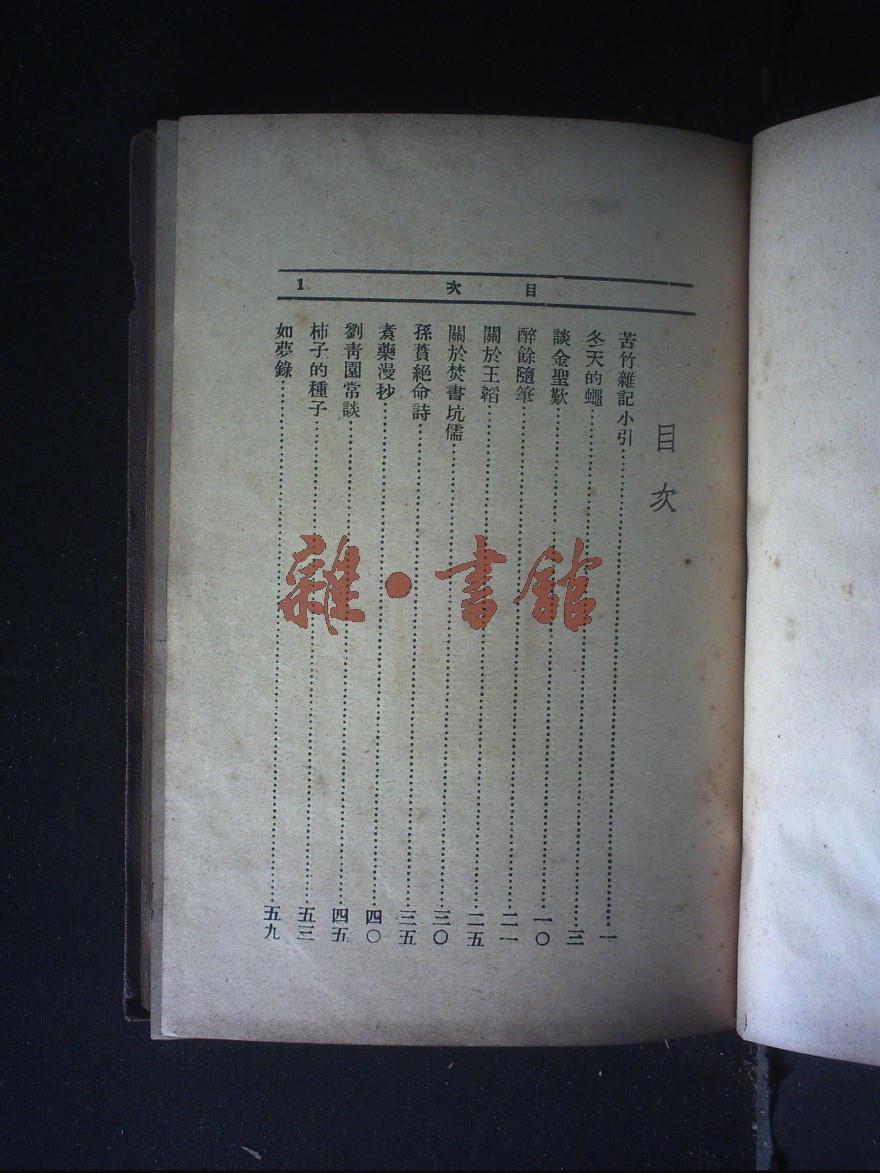 目次 1
目次
苦竹雜記小引……一
冬天的蠅……三
談金聖歎……一〇
醉餘隨筆……二一
關於王韜……二五
關於焚書坑儒……三〇
孫蕡絕命詩……三五
煮藥漫抄……四〇
劉青園常談……四五
柿子的種子……五三
如夢錄……五九
雜·書館